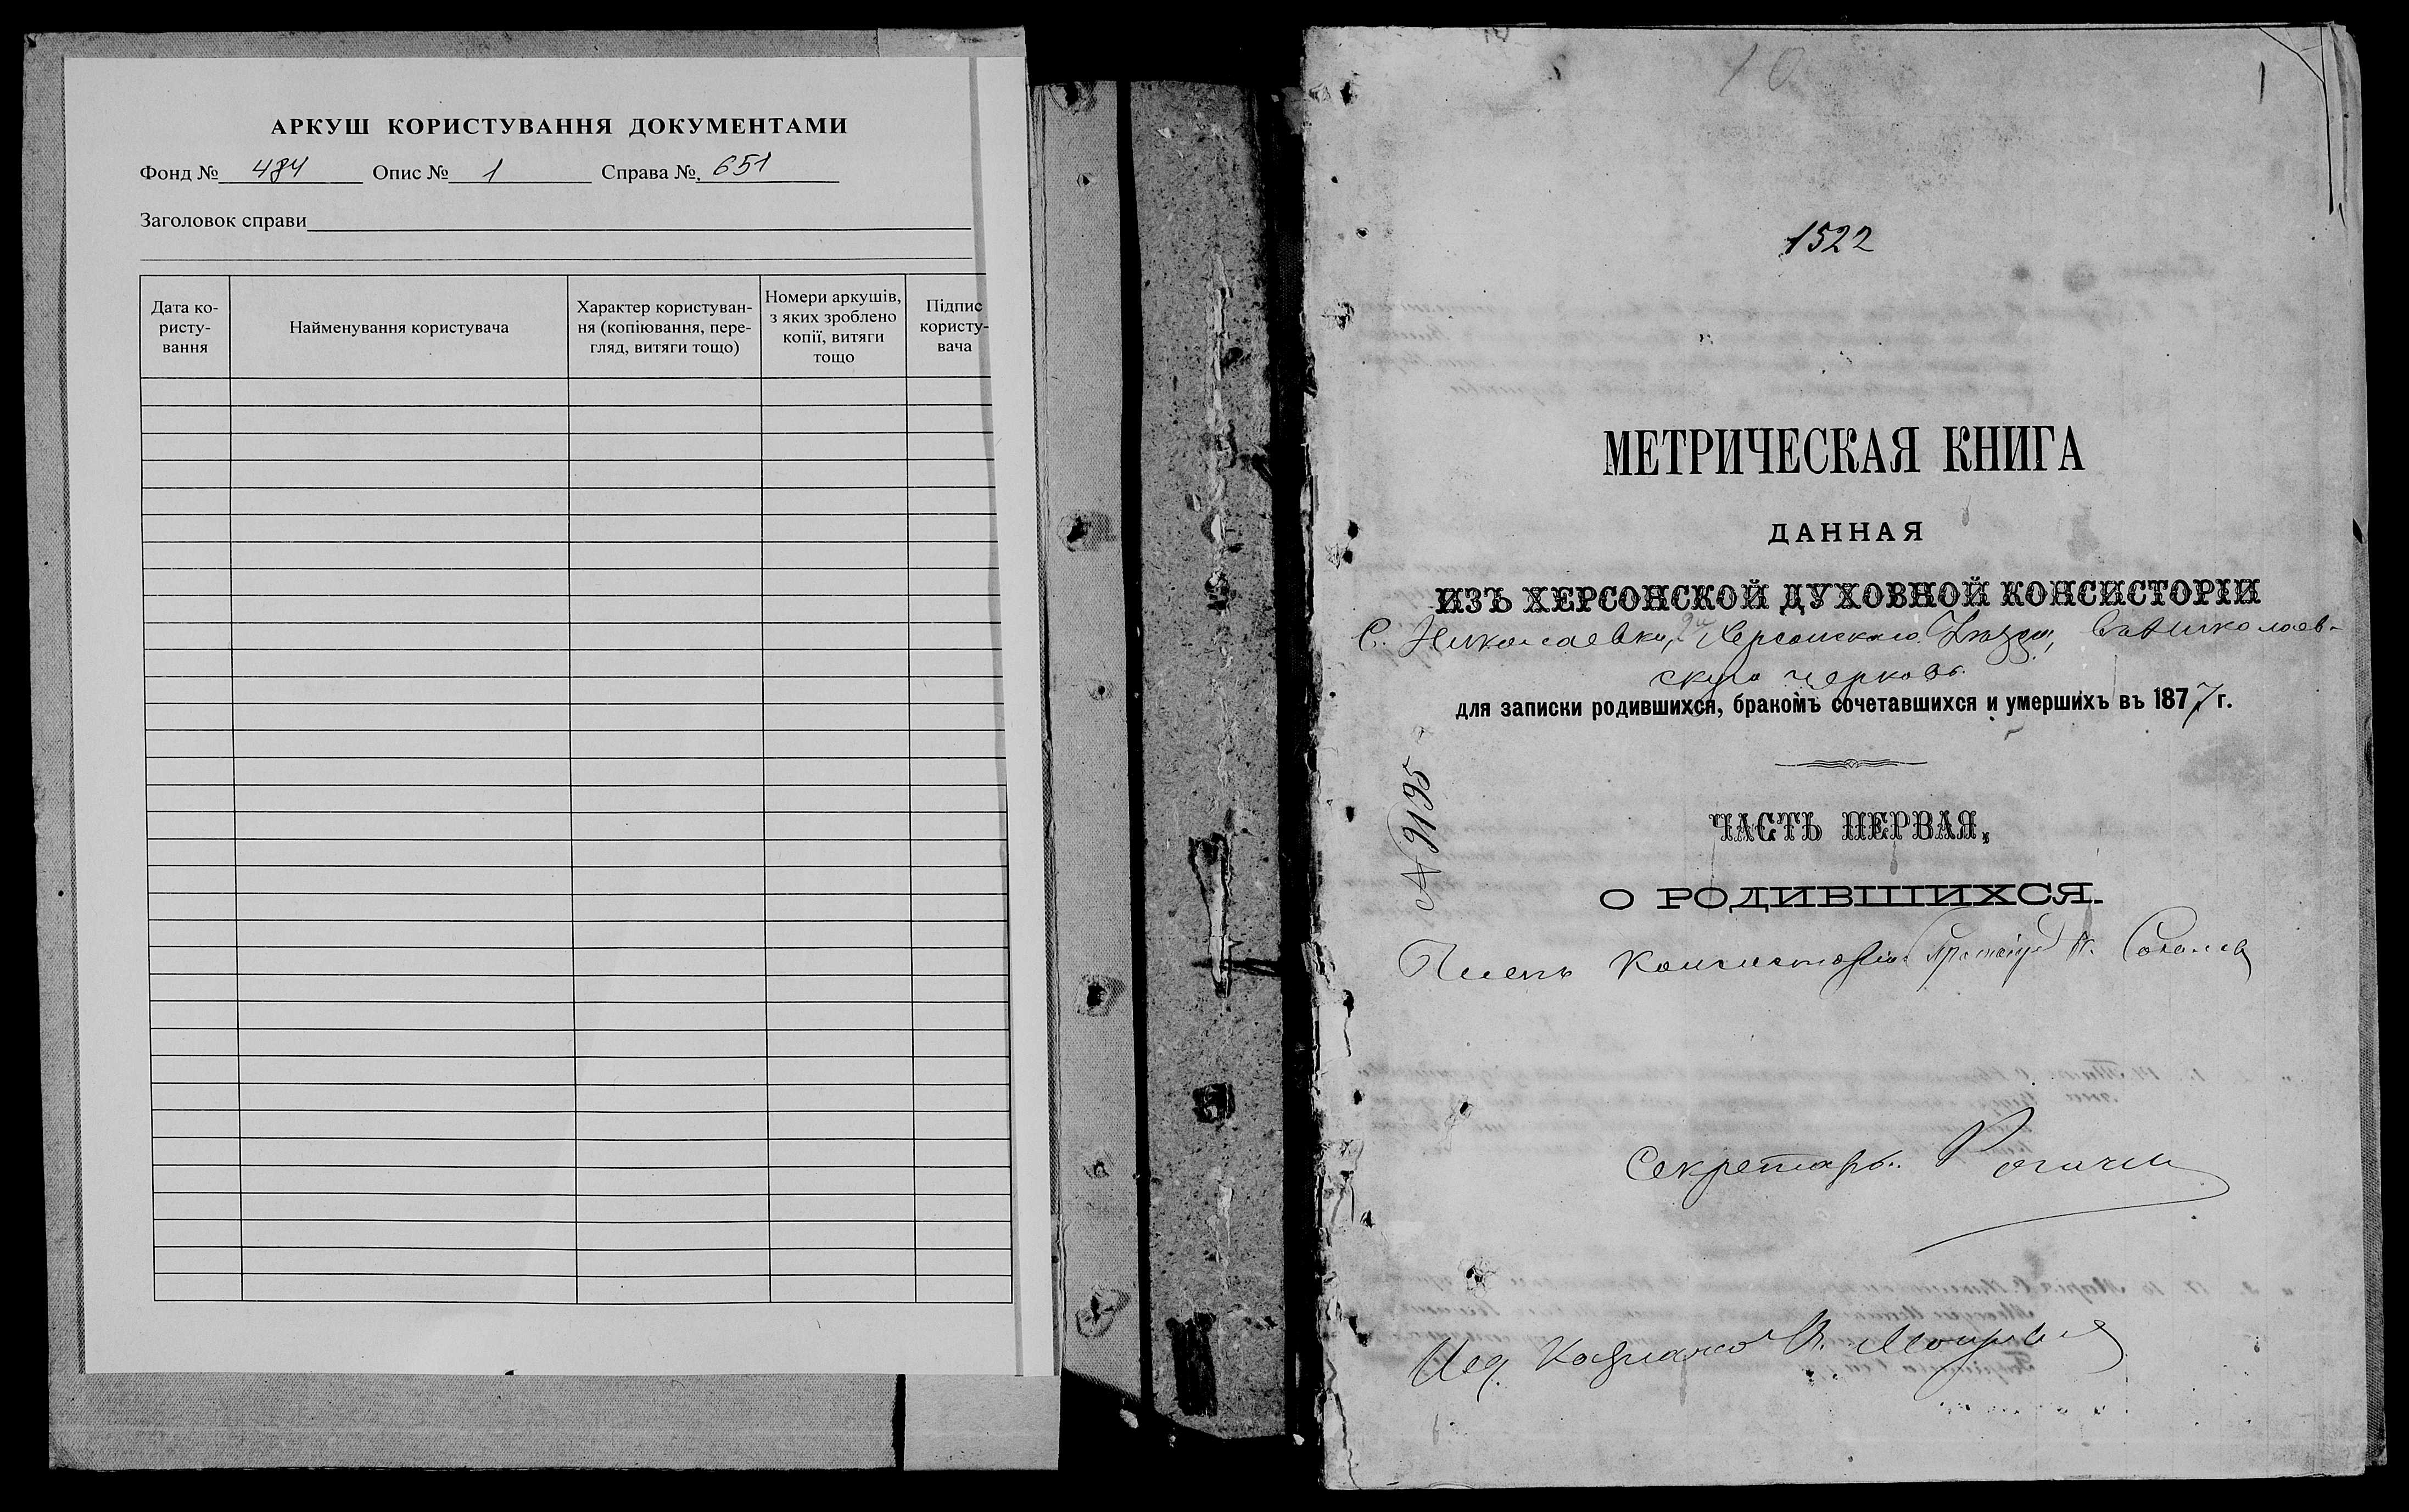 АРКУШ КОРИСТУВАННЯ ДОКУМЕНТАМИ
Фонд № 484 Опис № 1 Справа № 651
Заголовок справи
Дата ко-
ристу-
вання
Найменування користувача
Характер користуван-
ня (копіювання, пере-
гляд, витяги тощо)
Номери аркушів,
з яких зроблено
копії, витяги
тощо
Підпис
користу-
вача
10
1
1522
МЕТРИЧЕСКАЯ КНИГА
ДАННАЯ
ИЗЪ ХЕРСОНСКОЙ ДУХОВНОЙ КОНСИСТОРІИ
С. Николаевки, Херсонскаго Уезда, Св. Николаев-
скую церковь
для записки родившихся, бракомъ сочетавшихся и умершихъ въ 1877 г.
№ 9195
ЧАСТЬ ПЕРВАЯ,
О РОДИВШИХСЯ.
Членъ Консисторіи
Секретарь